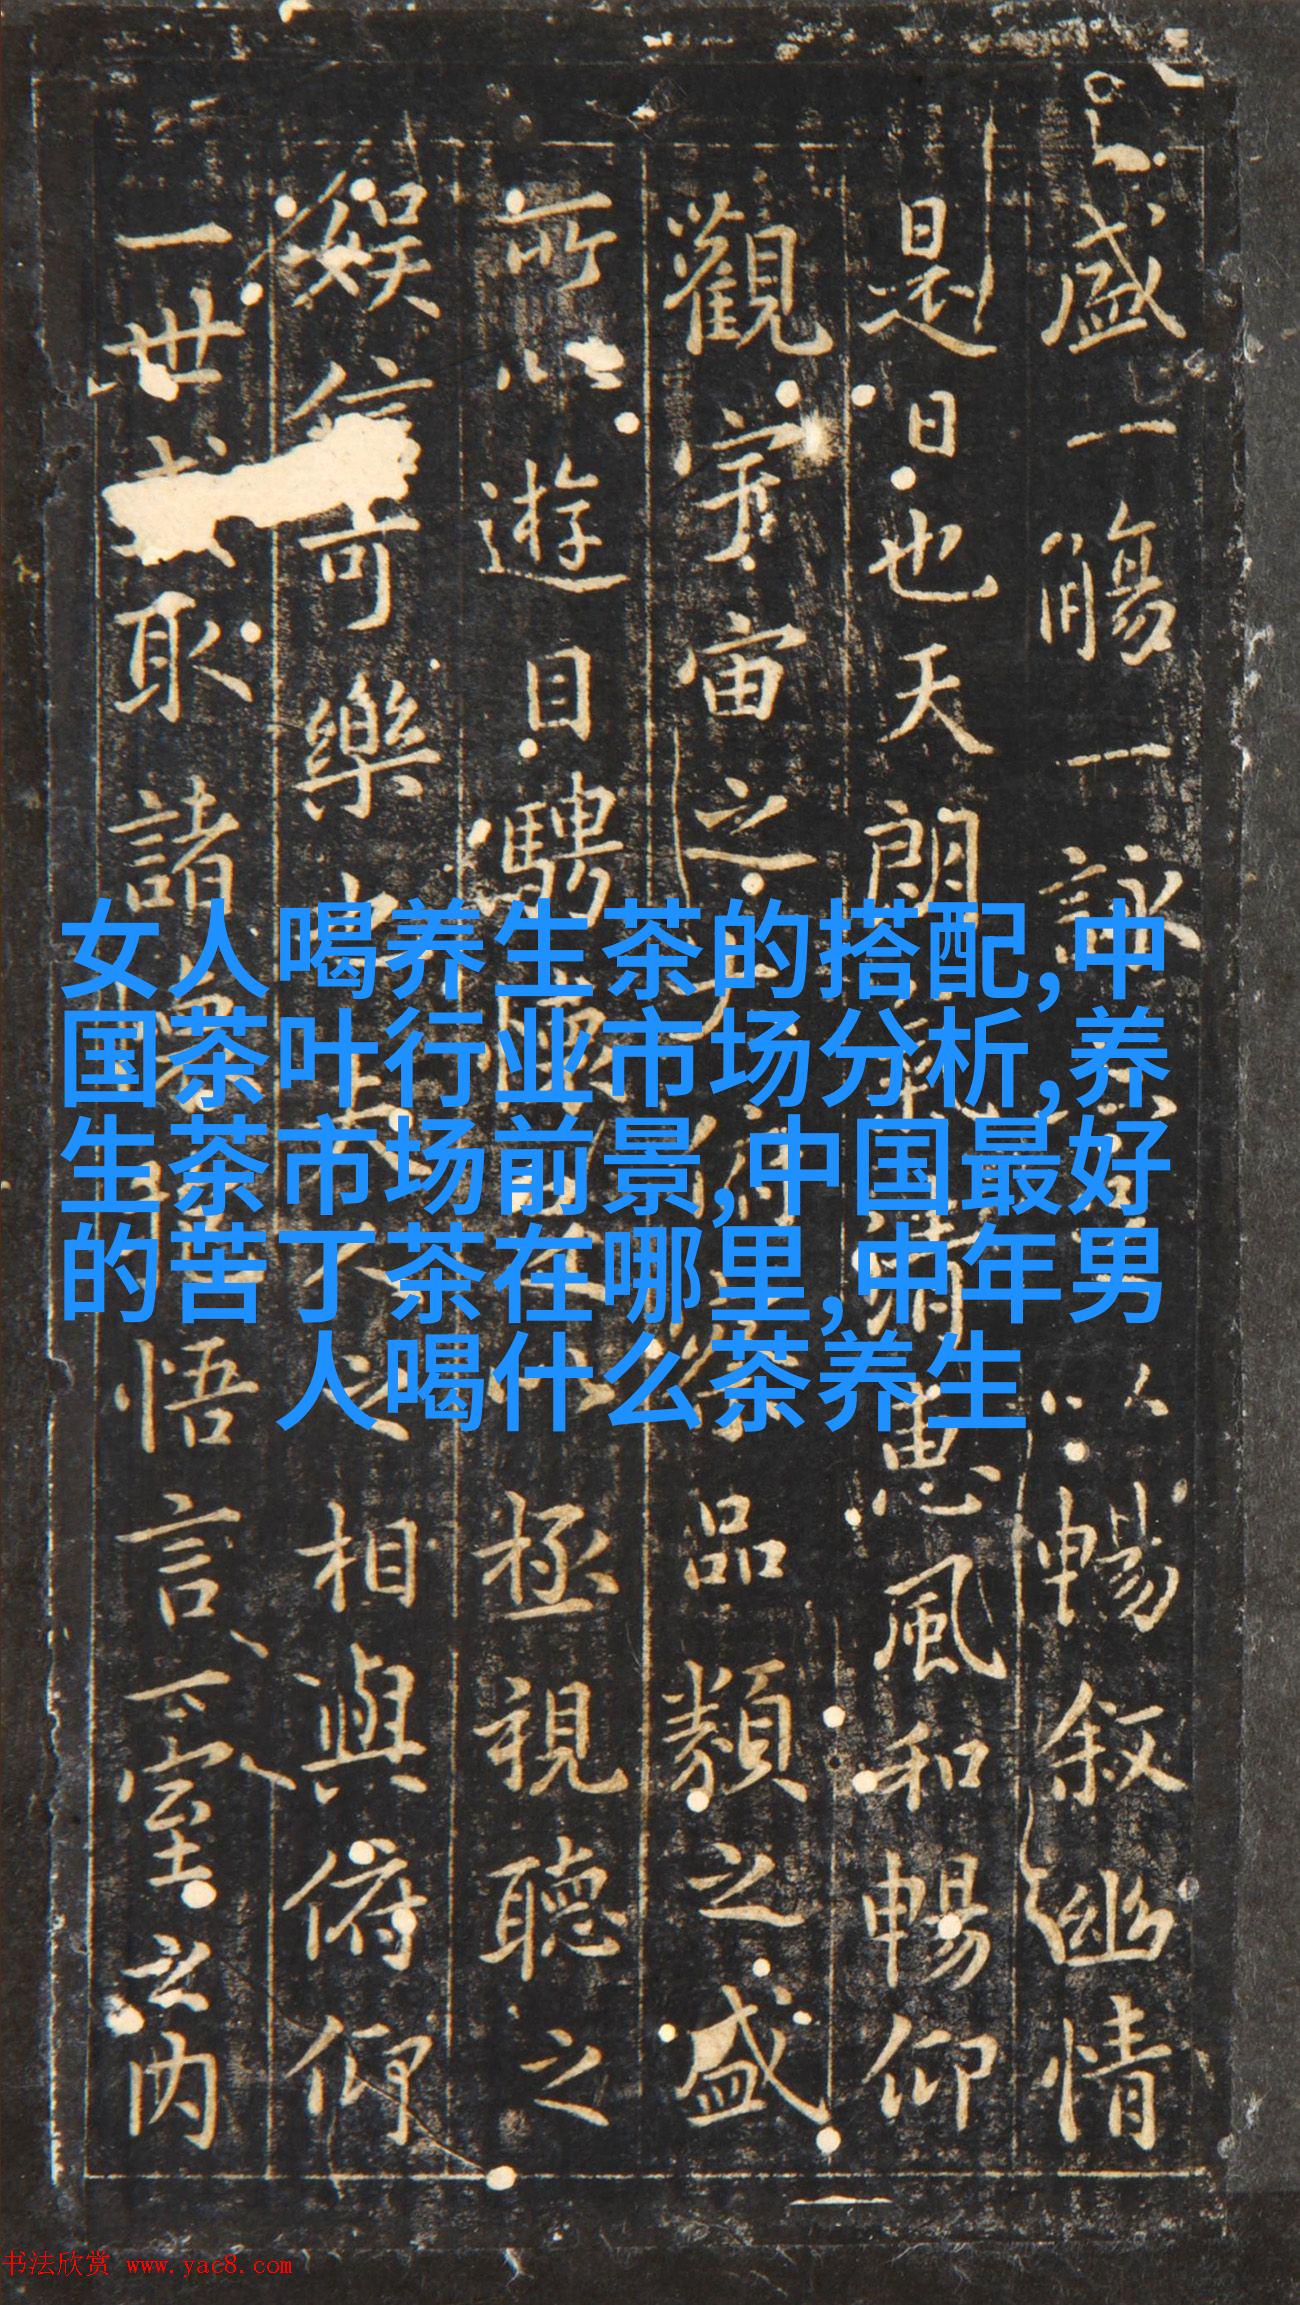 盛一觴一詠二以暢叙幽情
是日也天朗清惠風和暢仰
觀宇宙之俯品類之盛
所以遊目騁懷極視聽之
娱信可樂也夫人之相與俯仰
一世或取諸懷悟言一室之内
女人喝养生茶的搭配,中
国茶叶行业市场分析,养
生茶市场前景,中国最好
的苦丁茶在哪里,中年男
人喝什么茶养生
书法欣赏 www.yac8.com